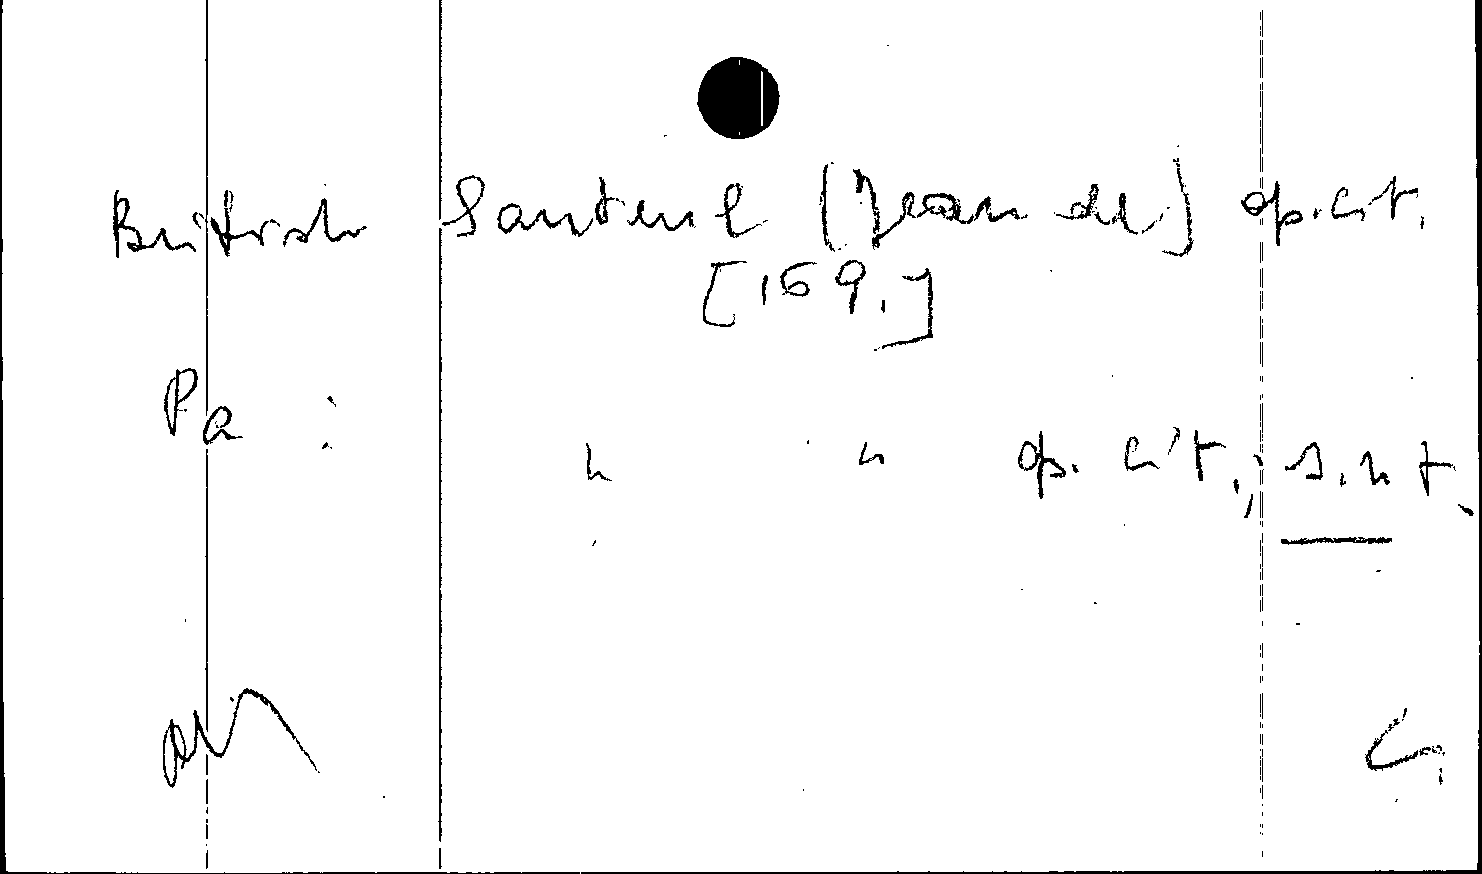 British Santeul (Jean de) op. cit.
[169.]
Pa : " " op. cit., s.n.t.